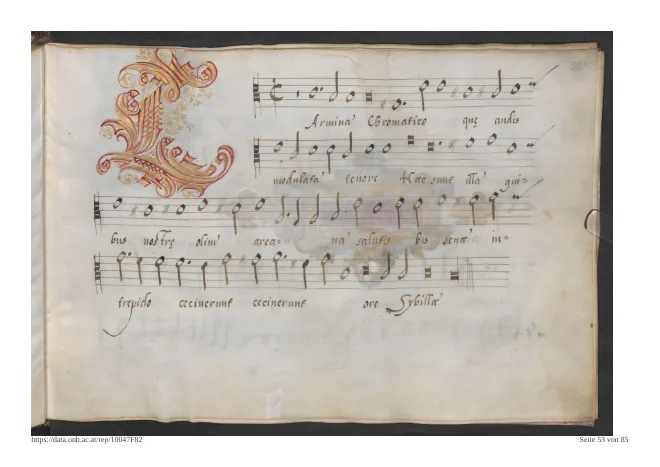 CArmina Chromatico quę audis
modulata tenore Hæc sunt illa qui=
bus nostrę olim arca= na salutis bis senæ in=
trepido cecinerunt cecinerunt ore Sybillæ
https://data.onb.ac.at/rep/10047F82
Seite 53 von 85